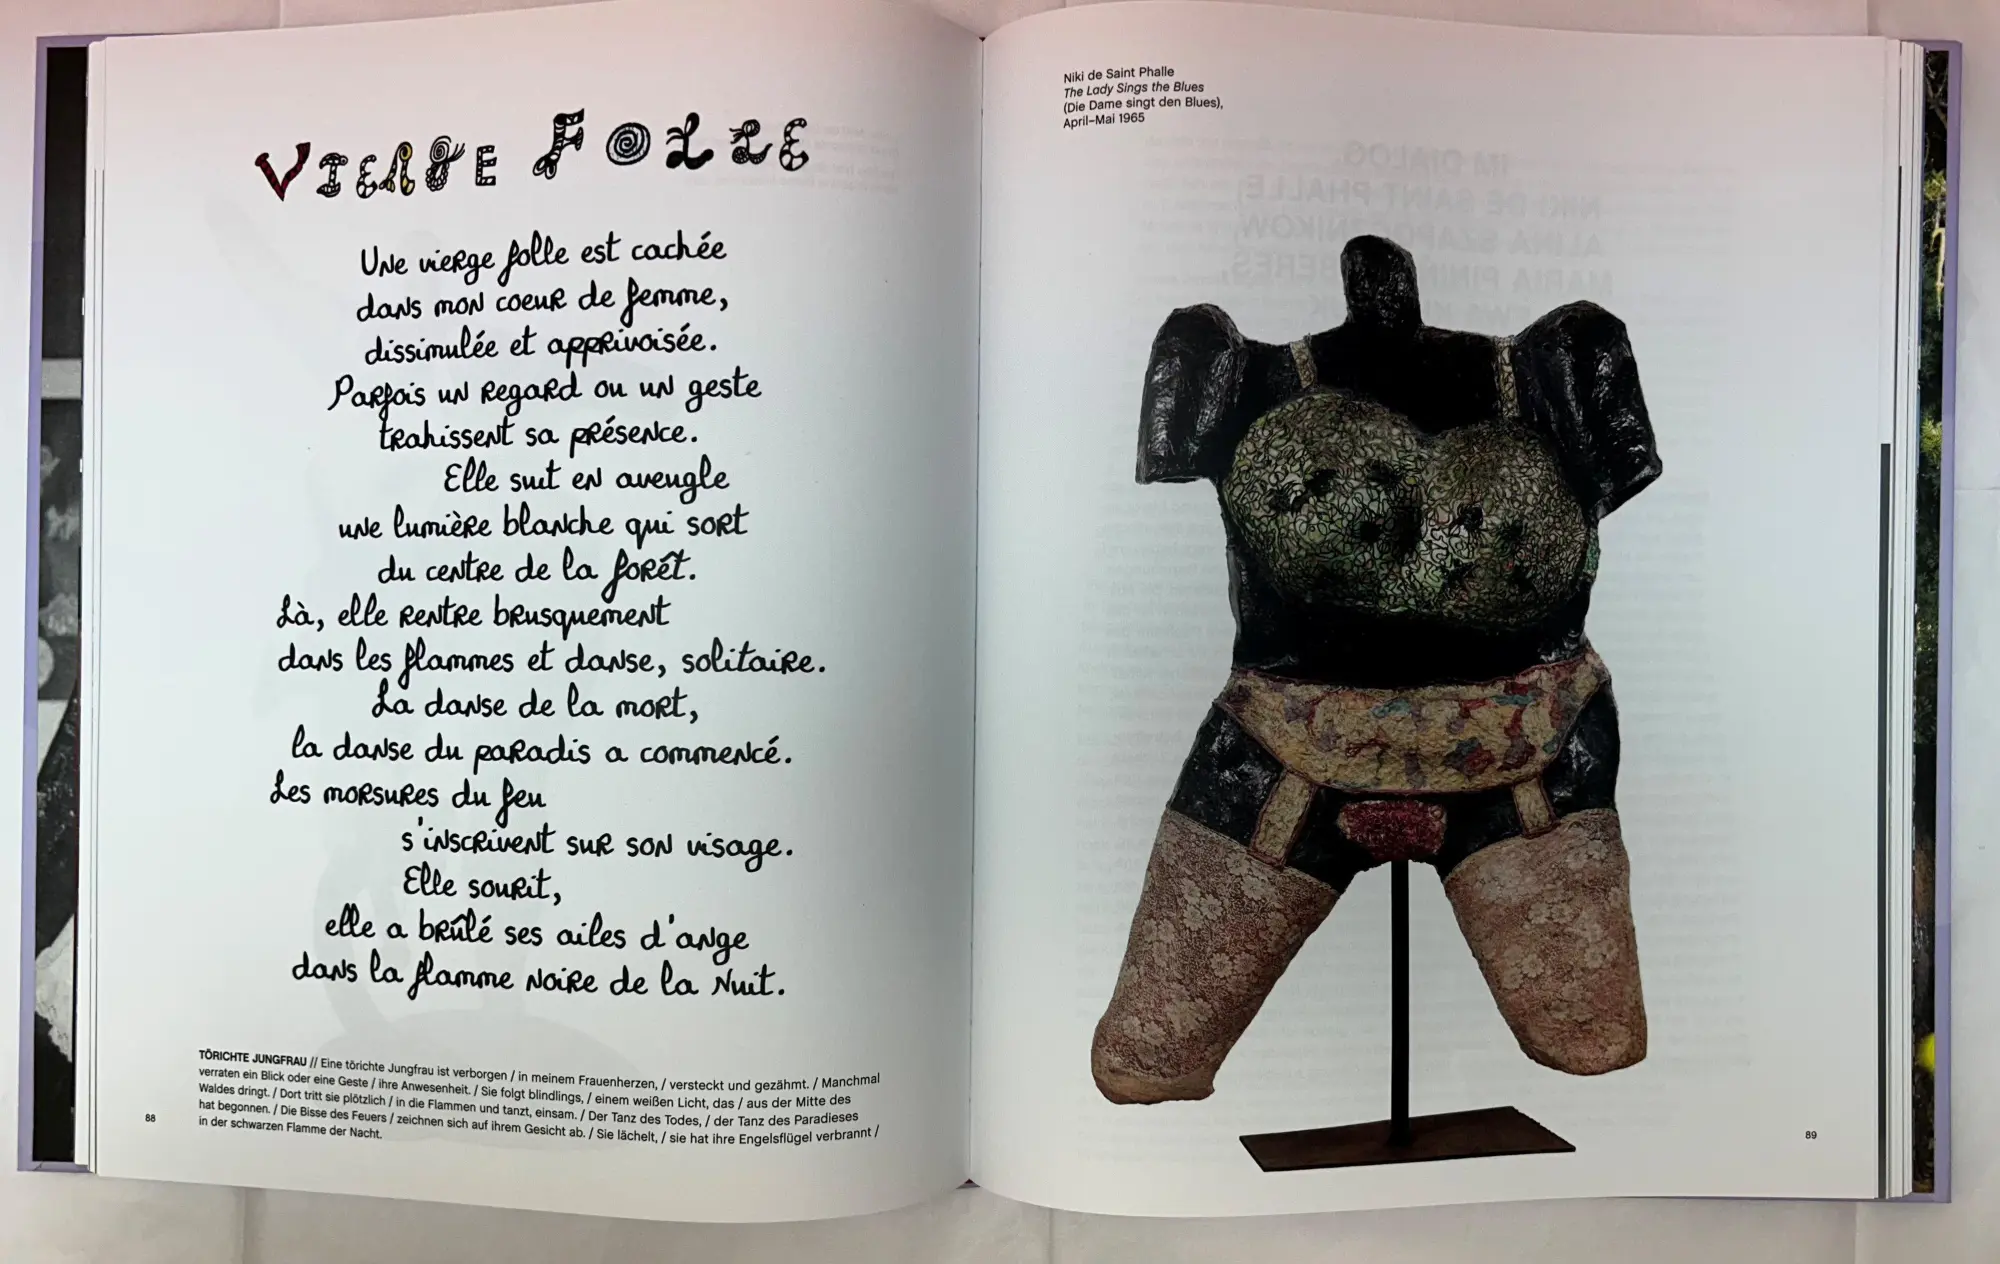 VIERGE FOLLE
Une vierge folle est cachée
dans mon coeur de femme,
dissimulée et apprivoisée.
Parfois un regard ou un geste
trahissent sa présence.
Elle suit en aveugle
une lumière blanche qui sort
du centre de la forêt.
Là, elle rentre brusquement
dans les flammes et danse, solitaire.
La danse de la mort,
la danse du paradis a commencé.
Les morsures du feu
s'inscrivent sur son visage.
Elle sourit,
elle a brûlé ses ailes d'ange
dans la flamme noire de la nuit.
TÖRICHTE JUNGFRAU // Eine törichte Jungfrau ist verborgen / in meinem Frauenherzen, / versteckt und gezähmt. / Manchmal
verraten ein Blick oder eine Geste / ihre Anwesenheit. / Sie folgt blindlings, / einem weißen Licht, das / aus der Mitte des
Waldes dringt. / Dort tritt sie plötzlich / in die Flammen und tanzt, einsam. / Der Tanz des Todes, / der Tanz des Paradieses
hat begonnen. / Die Bisse des Feuers / zeichnen sich auf ihrem Gesicht ab. / Sie lächelt, / sie hat ihre Engelsflügel verbrannt /
in der schwarzen Flamme der Nacht.
88
Niki de Saint Phalle
The Lady Sings the Blues
(Die Dame singt den Blues),
April–Mai 1965
IM DIALOG
NIKI DE SAINT PHALLE,
ALINA SZAPOCZNIKOW,
MARIA PININ BERES,
89